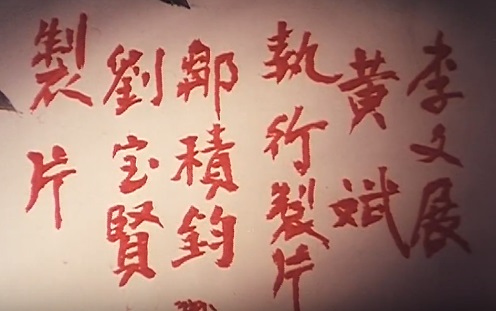 製片
劉宝賢
鄒積鈞
執行製片
黃斌
李文展